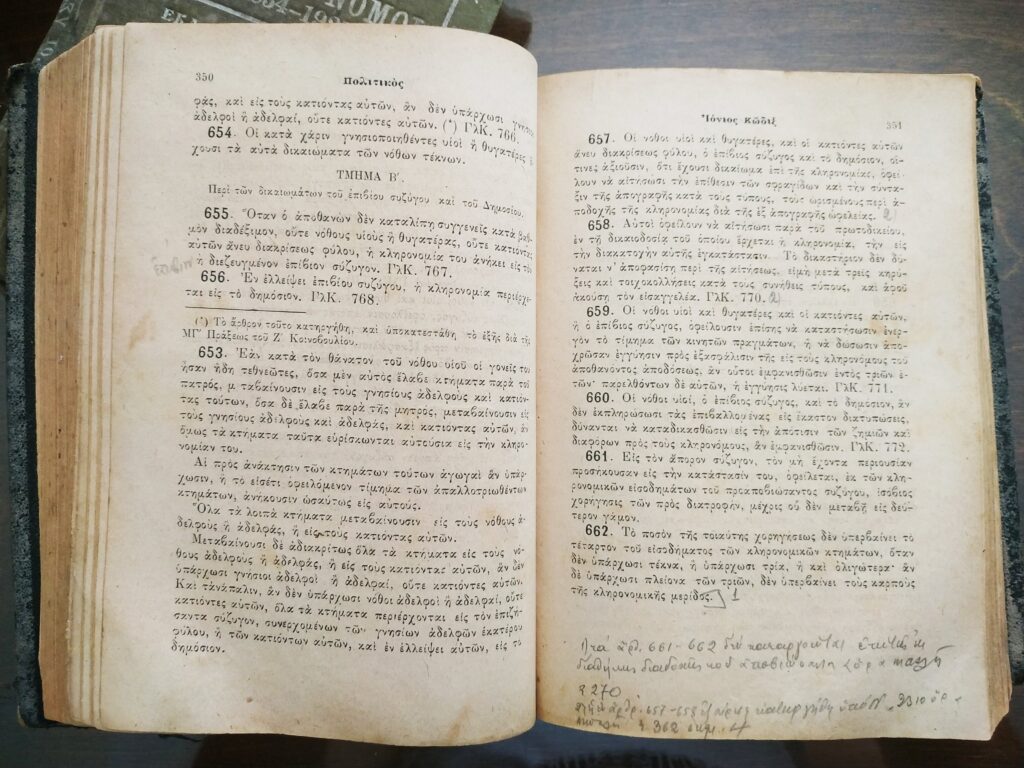 ΝΟΜΟΙ
350
Πολιτικὸς
φάς, καὶ εἰς τοὺς κατιόντας αὐτῶν, ἂν δὲν ὑπάρχωσι γνήσιοι
ἀδελφοὶ ἢ ἀδελφαί, οὔτε κατιόντες αὐτῶν. (*) ΓλΚ. 766.
654. Οἱ κατὰ χάριν γνησιοποιηθέντες υἱοὶ ἢ θυγατέρες
χουσι τὰ αὐτὰ δικαιώματα τῶν νόθων τέκνων.
ΤΜΗΜΑ Β΄.
Περὶ τῶν δικαιωμάτων τοῦ ἐπιβίου συζύγου καὶ τοῦ Δημοσίου.
655. Ὅταν ὁ ἀποθανὼν δὲν καταλίπῃ συγγενεῖς κατὰ βαθ-
μὸν διαδέξιμον, οὔτε νόθους υἱοὺς ἢ θυγατέρας, οὔτε κατιόντας
αὐτῶν ἄνευ διακρίσεως φύλου, ἡ κληρονομία του ἀνήκει εἰς τὸν
ἢ διεζευγμένον ἐπίβιον σύζυγον. ΓλΚ. 767.
656. Ἐν ἐλλείψει ἐπιβίου συζύγου, ἡ κληρονομία περιέρχε-
ται εἰς τὸ δημόσιον. ΓλΚ. 768.
(*) Τὸ ἄρθρον τοῦτο κατηργήθη, καὶ ὑποκατεστάθη τὸ ἑξῆς διὰ τῆς
ΜΓ΄ Πράξεως τοῦ Ζ΄ Κοινοβουλίου.
653. Ἐὰν κατὰ τὸν θάνατον τοῦ νόθου υἱοῦ οἱ γονεῖς του
ἦσαν ἤδη τεθνεῶτες, ὅσα μὲν αὐτὸς ἔλαβε κτήματα παρὰ τοῦ
πατρός, μεταβαίνουσιν εἰς τοὺς γνησίους ἀδελφοὺς καὶ κατιόν-
τας τούτων, ὅσα δὲ ἔλαβε παρὰ τῆς μητρός, μεταβαίνουσιν εἰς
τοὺς γνησίους ἀδελφοὺς καὶ ἀδελφάς, καὶ κατιόντας αὐτῶν, ἂν
ὅμως τὰ κτήματα ταῦτα εὑρίσκωνται αὐτούσια εἰς τὴν κληρο-
νομίαν του.
Αἱ πρὸς ἀνάκτησιν τῶν κτημάτων τούτων ἀγωγαὶ ἂν ὑπάρ-
χωσιν, ἢ τὸ εἰσέτι ὀφειλόμενον τίμημα τῶν ἀπαλλοτριωθέντων
κτημάτων, ἀνήκουσιν ὡσαύτως εἰς αὐτούς.
Ὅλα τὰ λοιπὰ κτήματα μεταβαίνουσιν εἰς τοὺς νόθους ἀ-
δελφοὺς ἢ ἀδελφάς, ἢ εἰς τοὺς κατιόντας αὐτῶν.
Μεταβαίνουσι δὲ ἀδιακρίτως ὅλα τὰ κτήματα εἰς τοὺς νό-
θους ἀδελφοὺς ἢ ἀδελφάς, ἢ εἰς τοὺς κατιόντας αὐτῶν, ἂν δὲν
ὑπάρχωσι γνήσιοι ἀδελφοὶ ἢ ἀδελφαί, οὔτε κατιόντες αὐτῶν.
Καὶ τἀνάπαλιν, ἂν δὲν ὑπάρχωσι νόθοι ἀδελφοὶ ἢ ἀδελφαί, οὔτε
κατιόντες αὐτῶν, ὅλα τὰ κτήματα περιέρχονται εἰς τὸν ἐπιζή-
σαντα σύζυγον, συνερχομένων τῶν γνησίων ἀδελφῶν ἑκατέρου
φύλου, ἢ τῶν κατιόντων αὐτῶν, καὶ ἐν ἐλλείψει αὐτῶν, εἰς τὸ
δημόσιον.
Ἰόνιος Κῶδιξ
351
657. Οἱ νόθοι υἱοὶ καὶ θυγατέρες, καὶ οἱ κατιόντες αὐτῶν
ἄνευ διακρίσεως φύλου, ὁ ἐπίβιος σύζυγος καὶ τὸ δημόσιον, οἵ-
τινες ἀξιοῦσιν, ὅτι ἔχουσι δικαίωμα ἐπὶ τῆς κληρονομίας, ὀφεί-
λουν νὰ αἰτήσωσι τὴν ἐπίθεσιν τῶν σφραγίδων καὶ τὴν σύντα-
ξιν τῆς ἀπογραφῆς κατὰ τοὺς τύπους, τοὺς ὡρισμένους περὶ ἀ-
ποδοχῆς τῆς κληρονομίας διὰ τῆς ἐξ ἀπογραφῆς ὠφελείας. 2
658. Αὐτοὶ ὀφείλουν νὰ αἰτήσωσι παρὰ τοῦ πρωτοδικείου,
ἐν τῇ δικαιοδοσίᾳ τοῦ ὁποίου ἔρχεται ἡ κληρονομία, τὴν εἰς
τὴν διακατοχὴν αὐτῆς ἐγκατάστασιν. Τὸ δικαστήριον δὲν δύ-
ναται ν' ἀποφασίσῃ περὶ τῆς αἰτήσεως, εἰμὴ μετὰ τρεῖς κηρύ-
ξεις καὶ τοιχοκολλήσεις κατὰ τοὺς συνήθεις τύπους, καὶ ἀφοῦ
ἀκούσῃ τὸν εἰσαγγελέα. ΓλΚ. 770. 2)
659. Οἱ νόθοι υἱοὶ καὶ θυγατέρες καὶ οἱ κατιόντες αὐτῶν,
ἢ ὁ ἐπίβιος σύζυγος, ὀφείλουσιν ἐπίσης νὰ καταστήσωσιν ἐνερ-
γὸν τὸ τίμημα τῶν κινητῶν πραγμάτων, ἢ νὰ δώσωσιν ἀπο-
χρῶσαν ἐγγύησιν πρὸς ἐξασφάλισιν τῆς εἰς τοὺς κληρονόμους τοῦ
ἀποθανόντος ἀποδόσεως, ἂν οὗτοι ἐμφανισθῶσιν ἐντὸς τριῶν ἐ-
τῶν· παρελθόντων δὲ αὐτῶν, ἡ ἐγγύησις λύεται. ΓλΚ. 771.
660. Οἱ νόθοι υἱοί, ὁ ἐπίβιος σύζυγος, καὶ τὸ δημόσιον, ἂν
δὲν ἐκπληρώσωσι τὰς ἐπιβαλλομένας εἰς ἕκαστον διατυπώσεις,
δύνανται νὰ καταδικασθῶσιν εἰς τὴν ἀπότισιν τῶν ζημιῶν καὶ
διαφόρων πρὸς τοὺς κληρονόμους, ἂν ἐμφανισθῶσιν. ΓλΚ. 772.
661. Εἰς τὸν ἄπορον σύζυγον, τὸν μὴ ἔχοντα περιουσίαν
προσήκουσαν εἰς τὴν κατάστασίν του, ὀφείλεται, ἐκ τῶν κλη-
ρονομικῶν εἰσοδημάτων τοῦ προαποβιώσαντος συζύγου, ἰσόβιος
χορήγησις τῶν πρὸς διατροφήν, μέχρις οὗ δὲν μεταβῇ εἰς δεύ-
τερον γάμον.
662. Τὸ ποσὸν τῆς τοιαύτης χορηγήσεως δὲν ὑπερβαίνει τὸ
τέταρτον τοῦ εἰσοδήματος τῶν κληρονομικῶν κτημάτων, ὅταν
δὲν ὑπάρχωσι τέκνα, ἢ ὑπάρχωσι τρία, ἢ καὶ ὀλιγώτερα· ἂν
δὲ ὑπάρχωσι πλείονα τῶν τριῶν, δὲν ὑπερβαίνει τοὺς καρποὺς
τῆς κληρονομικῆς μερίδος. 1
1) τα ἄρθ. 661-662 δὲν καταργοῦνται
διαθήκης διαδοχῆς τοῦ
270
ἀρθρ. 657-658 κατηργήθη 3310
362